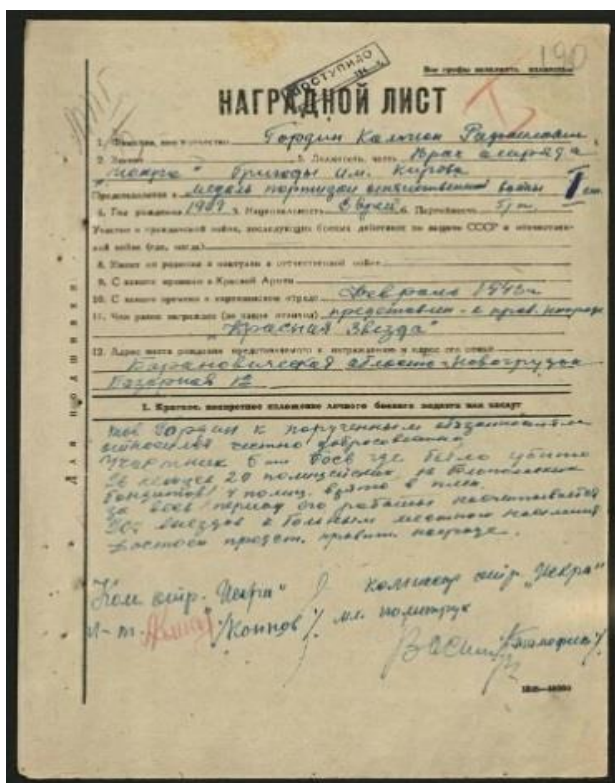 190
Все графы заполнять
ПОСТУПИЛО
НАГРАДНОЙ ЛИСТ
1. Фамилия, имя и отчество Гордин
2. Звание 3. Должность, часть Врач отряда
"Искра" бригады им. Кирова
Представляется к медаль партизан отечественной войны I ст.
4. Год рождения 1909 5. Национальность Еврей 6. Партийность б/п.
Участие в гражданской войне, последующих боевых действиях по защите СССР и отечествен-
ной войне (где, когда)
8. Имеет ли ранения и контузии в отечественной войне
9. С какого времени в Красной Армии
10. С какого времени в партизанском отряде Февраль
11. Чем ранее награжден (за какие отличия) представлен к прав. награде
"Красная Звезда"
12. Адрес места рождения представляемого к награждению и адрес его семьи
Барановическая область Новогрудок
Базарная 12
Для подшивки
I. Краткое, конкретное изложение личного боевого подвига или заслуг
тов Гордин к порученным обязанностям
относился честно добросовестно
Участник 5ти боев где было убито
26 немцев 20 полицейских,
бандитов, 4 полиц. взято в плен.
за весь период его работы насчитывается
выездов к больным местного населения
достоин предст. правит. награде.
Ком отр. "Искра" комиссар отр. "Искра"
л-т. мл. политрук